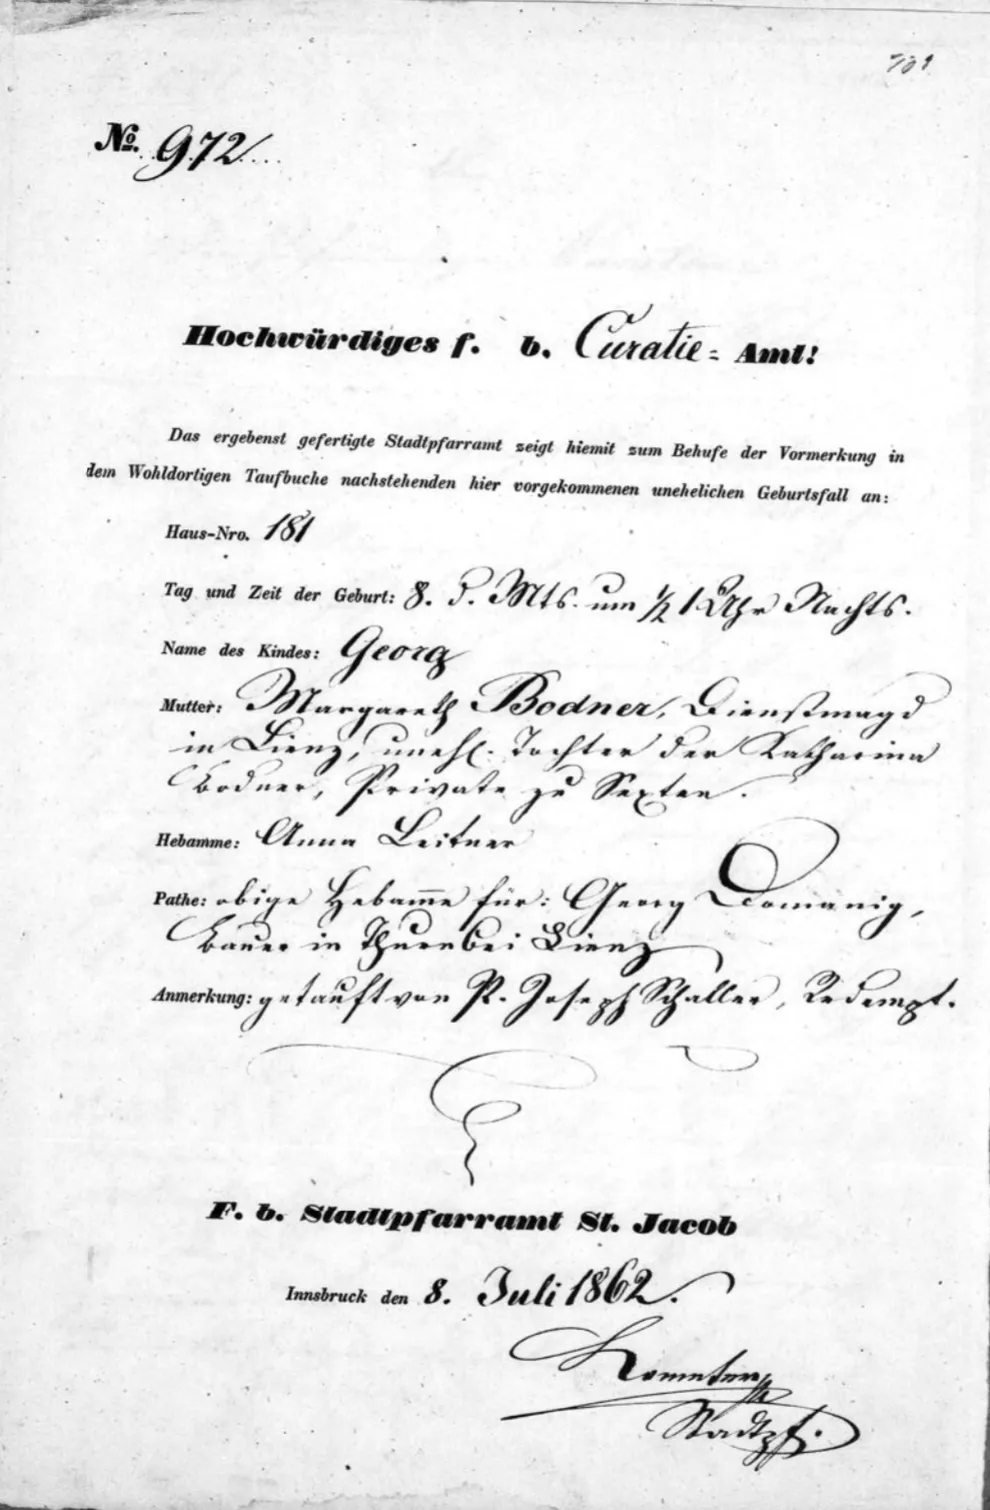 No. 972
Hochwürdiges f. b. Curatie= Amt!
Das ergebenst gefertigte Stadtpfarramt zeigt hiemit zum Behufe der Vormerkung in
dem Wohldortigen Taufbuche nachstehenden hier vorgekommenen unehelichen Geburtsfall an:
Haus-Nro. 181
Tag und Zeit der Geburt: 8. d. Mts. um ½ 1 Uhr Nachts.
Name des Kindes: Georg
Mutter: Margareth Bodner, Dienstmagd
in Lienz, unehl. Tochter der Katharina
Bodner, Private zu Sexten.
Hebamme: Anna Leitner
Pathe: obige Hebam̅e für: Georg Domanig,
Bauer in Thurn bei Lienz
Anmerkung: getauft von P. Joseph Schaller, Redempt.
F. b. Stadtpfarramt St. Jacob
Innsbruck den 8. Juli 1862.
Stadtpf.